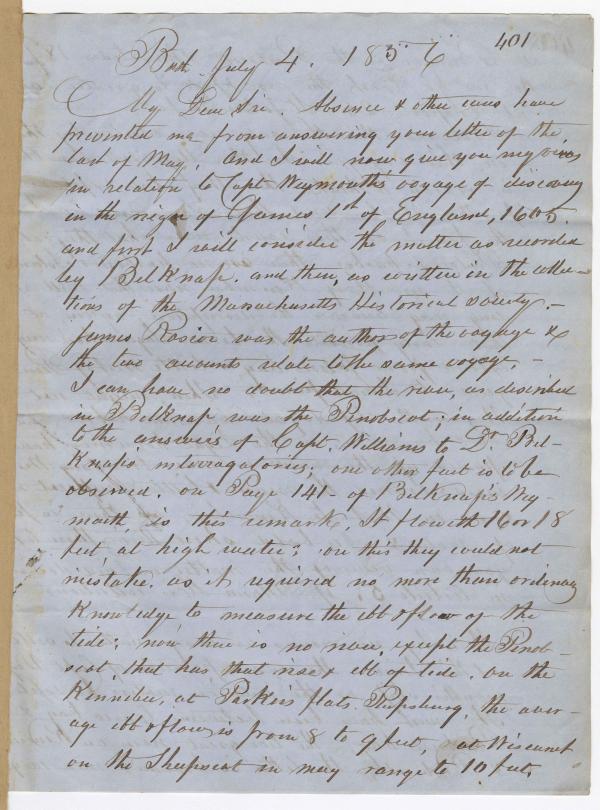 401
Bath July 4. 1856
My Dear Sir. Absence & other causes have
prevented me from answering your letter of the
last of May, And I will now give you my views
in relation to Capt Weymouth's voyage of discovery
in the reign of James 1st of England, 1605.
and first I will consider the matter as recorded
by Belknap. and then, as written in the collec-
tions of the Massachusetts Historical society.-
James Rosier was the author of the voyage &
the two accounts relate to the same voyage,-
I can have no doubt that the river, as discribed
in Belknap was the Penobscot; in addition
to the answers of Capt. Williams to Dr Bel-
Knap's interragatories; one other fact is to be
observed. on Page 141- of Belknap's Wey-
mouth, is this remark, It floweth 16 or 18
feet at high water; on this they could not
mistake. as it required no more than ordinary
Knowledge to measure the ebb & flow of the
tide; now there is no river, except the Penob-
scot, that has that rise & ebb of tide. on the
Kennebec, at Parkers flats. Phipsburg, the aver-
age ebb & flow is from 8 to 9 feet, at Wiscasset
on the Sheepscot in may range to 10 feet,